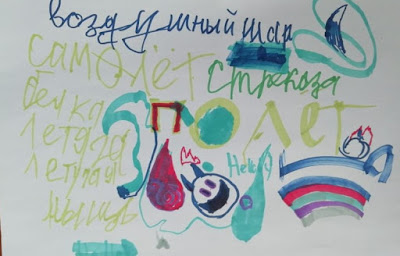 воздушный шар
самолёт
стрекоза
белка
летяга
полет
летучая
мышь